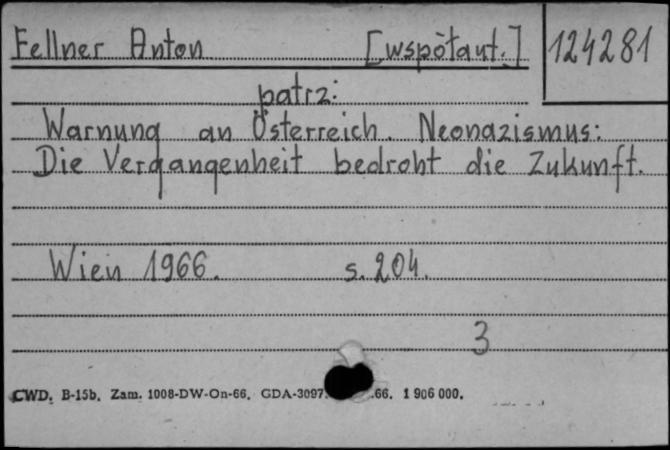 Fellner Anton [wspòłaut.] 124281
patrz:
Warnung an Österreich. Neonazismus:
Die Vergangenheit bedroht die Zukunft.
Wien 1966. s. 204.
3
CWD. B-15b. Zam. 1008-DW-On-66. GDA-3097. .66. 1 906 000.